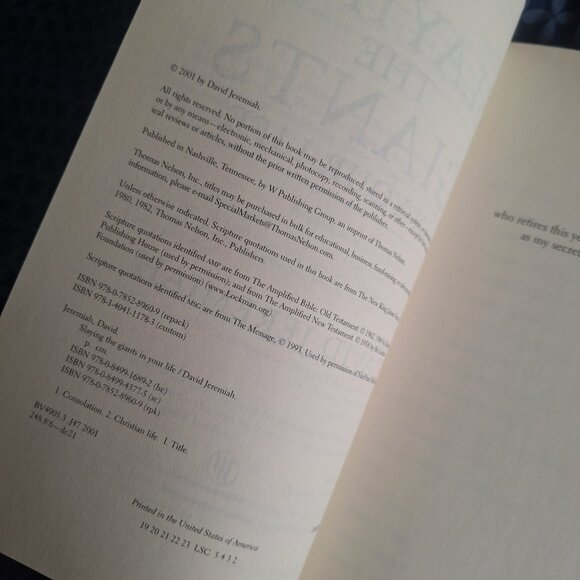 © 2001 by David Jeremiah.
All rights reserved. No portion of this book may be reproduced, stored in a retrieval system, or
or by any means—electronic, mechanical, photocopy, recording, scanning, or other—except
ical reviews or articles, without the prior written permission of the publisher.
Published in Nashville, Tennessee, by W Publishing Group, an imprint of Thomas Nelson.
Thomas Nelson, Inc., titles may be purchased in bulk for educational, business, fund-raising, or
information, please e-mail SpecialMarkets@ThomasNelson.com.
Unless otherwise indicated, Scripture quotations used in this book are from The New King James
1980, 1982, Thomas Nelson, Inc., Publishers
Scripture quotations identified AMP are from The Amplified Bible: Old Testament © 1962, 1964
Publishing House (used by permission); and from The Amplified New Testament © 1958
Foundation (used by permission) (www.Lockman.org)
Scripture quotations identified MSG are from The Message, © 1993. Used by permission of
ISBN 978-0-7852-8960-9 (repack)
ISBN 978-1-4041-1178-3 (custom)
Jeremiah, David.
Slaying the giants in your life / David Jeremiah.
p. cm.
ISBN 978-0-8499-1689-2 (hc)
ISBN 978-0-8499-4377-5 (se)
ISBN 978-0-7852-8960-9 (rpk)
1. Consolation. 2. Christian life. I. Title.
BV4905.3 .J47 2001
248.8'6—dc21
Printed in the United States of America
19 20 21 22 23 LSC 5 4 3 2
who retires this ye
as my secret